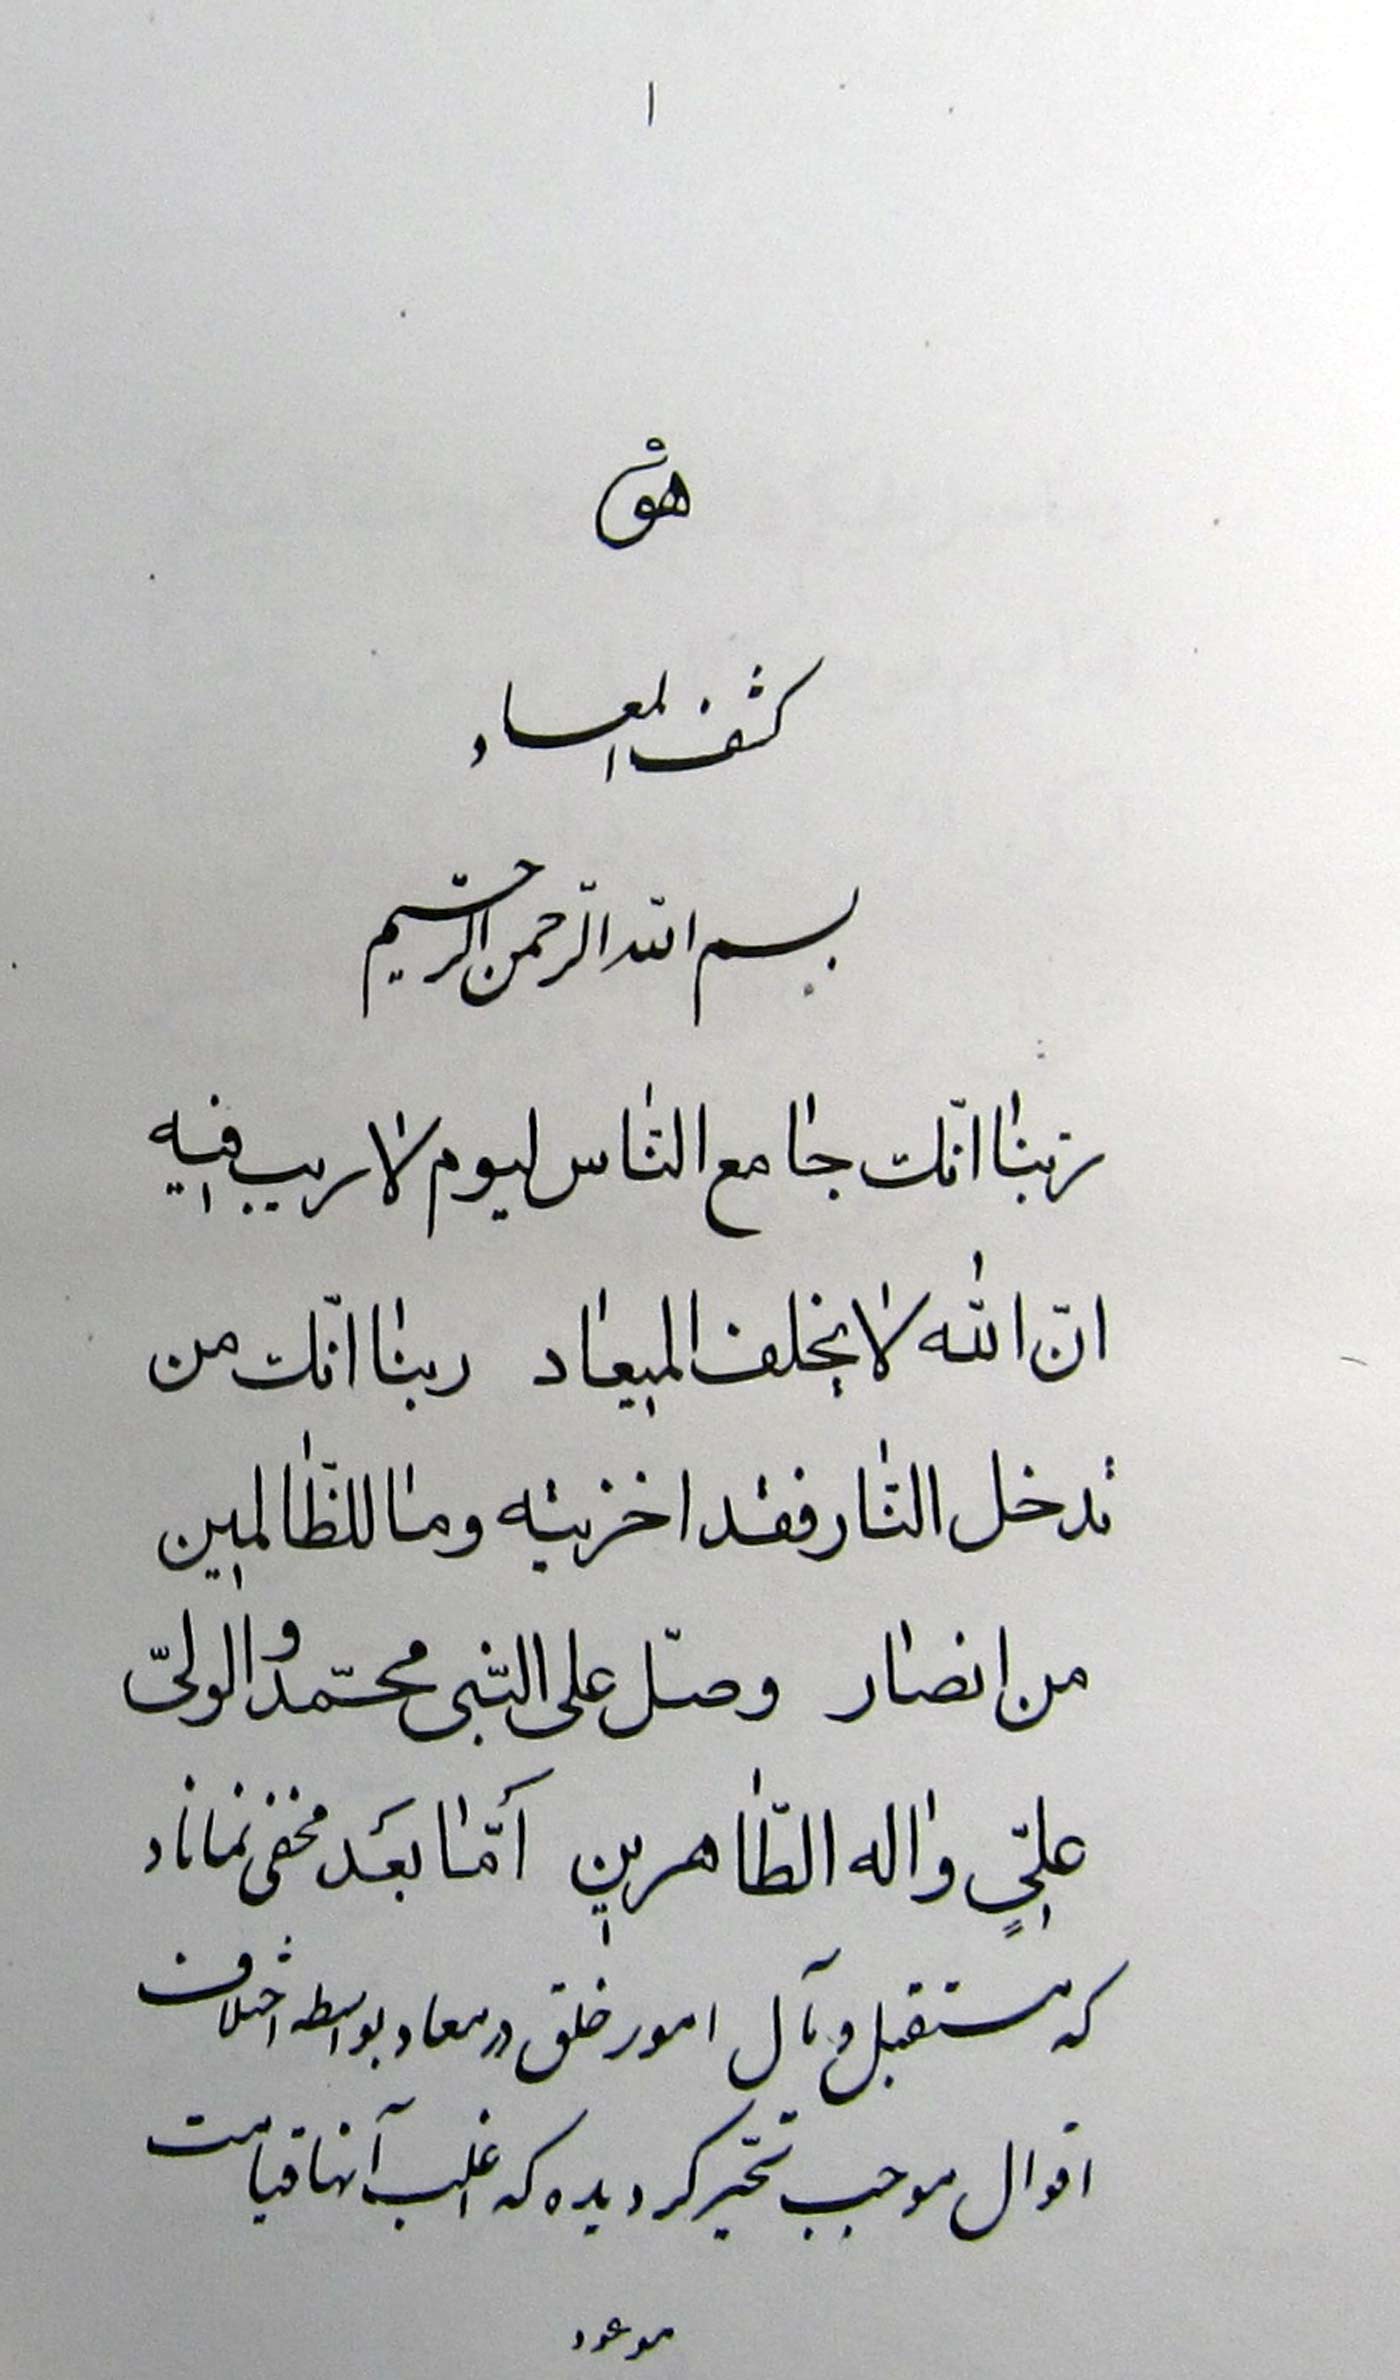 ۱
هو
کشف المعاد
بسم الله الرحمن الرحیم
ربّنا انّک جامع النّاس لیوم لا ریب فیه
انّ الله لا یخلف المیعاد ربنا انّک من
تدخل النّار فقد اخزیته وما للظّالمین
من انصار وصلّ علی النّبی محمّد والولیّ
علیٍّ واله الطّاهرین أمّا بعَد مخفی نماناد
که مستقبل و مآل امور خلق در معاد بواسطه اختلاف
اقوال موجب تحیّر گردیده که اغلب آنها قیامت
موعود